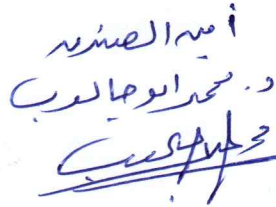 أمين الصندوق
د. محمد أبو جالوب